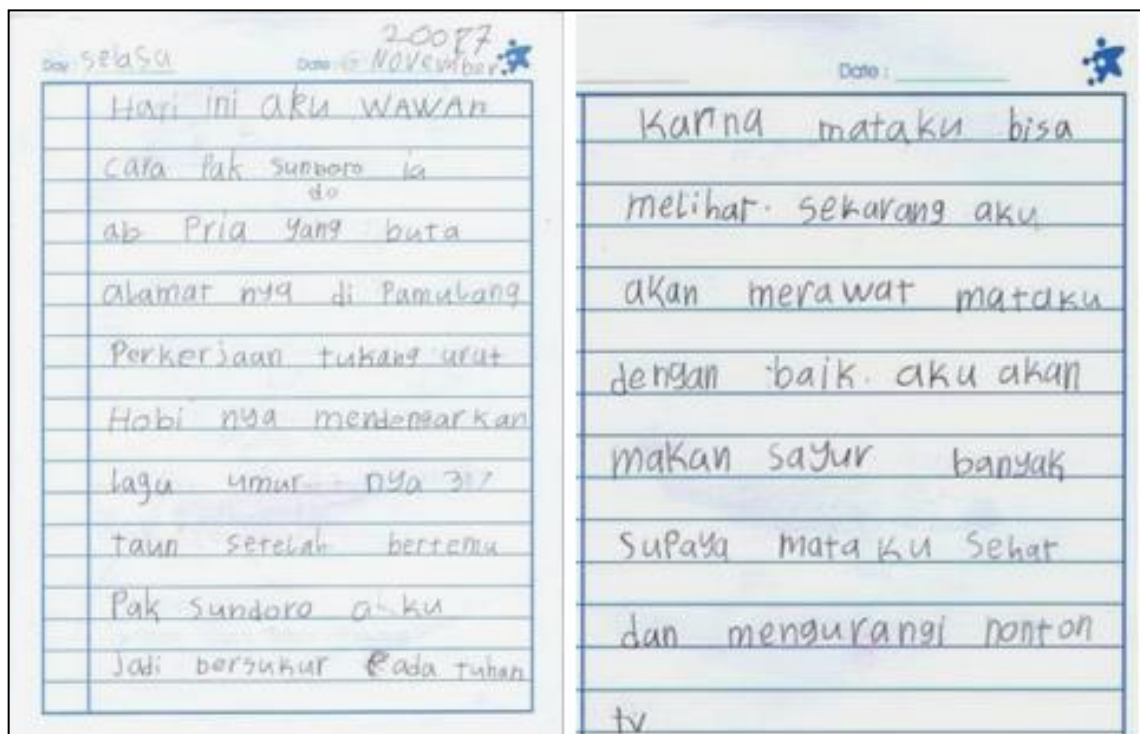 20077
Day: selasa Date: 6 November
Hari ini aku WAWAN
cara Pak sunboro ia
do
ab Pria yang buta
alamat nya di Pamulang
Perkerjaan tukang urut
Hobi nya mendengarkan
lagu umur nya 37
taun setelah bertemu
Pak Sundoro aku
Jadi bersukur Pada tuhan
Date:
Karna mataku bisa
melihat. sekarang aku
akan merawat mataku
dengan baik. aku akan
makan sayur banyak
supaya mata ku sehat
dan mengurangi nonton
tv